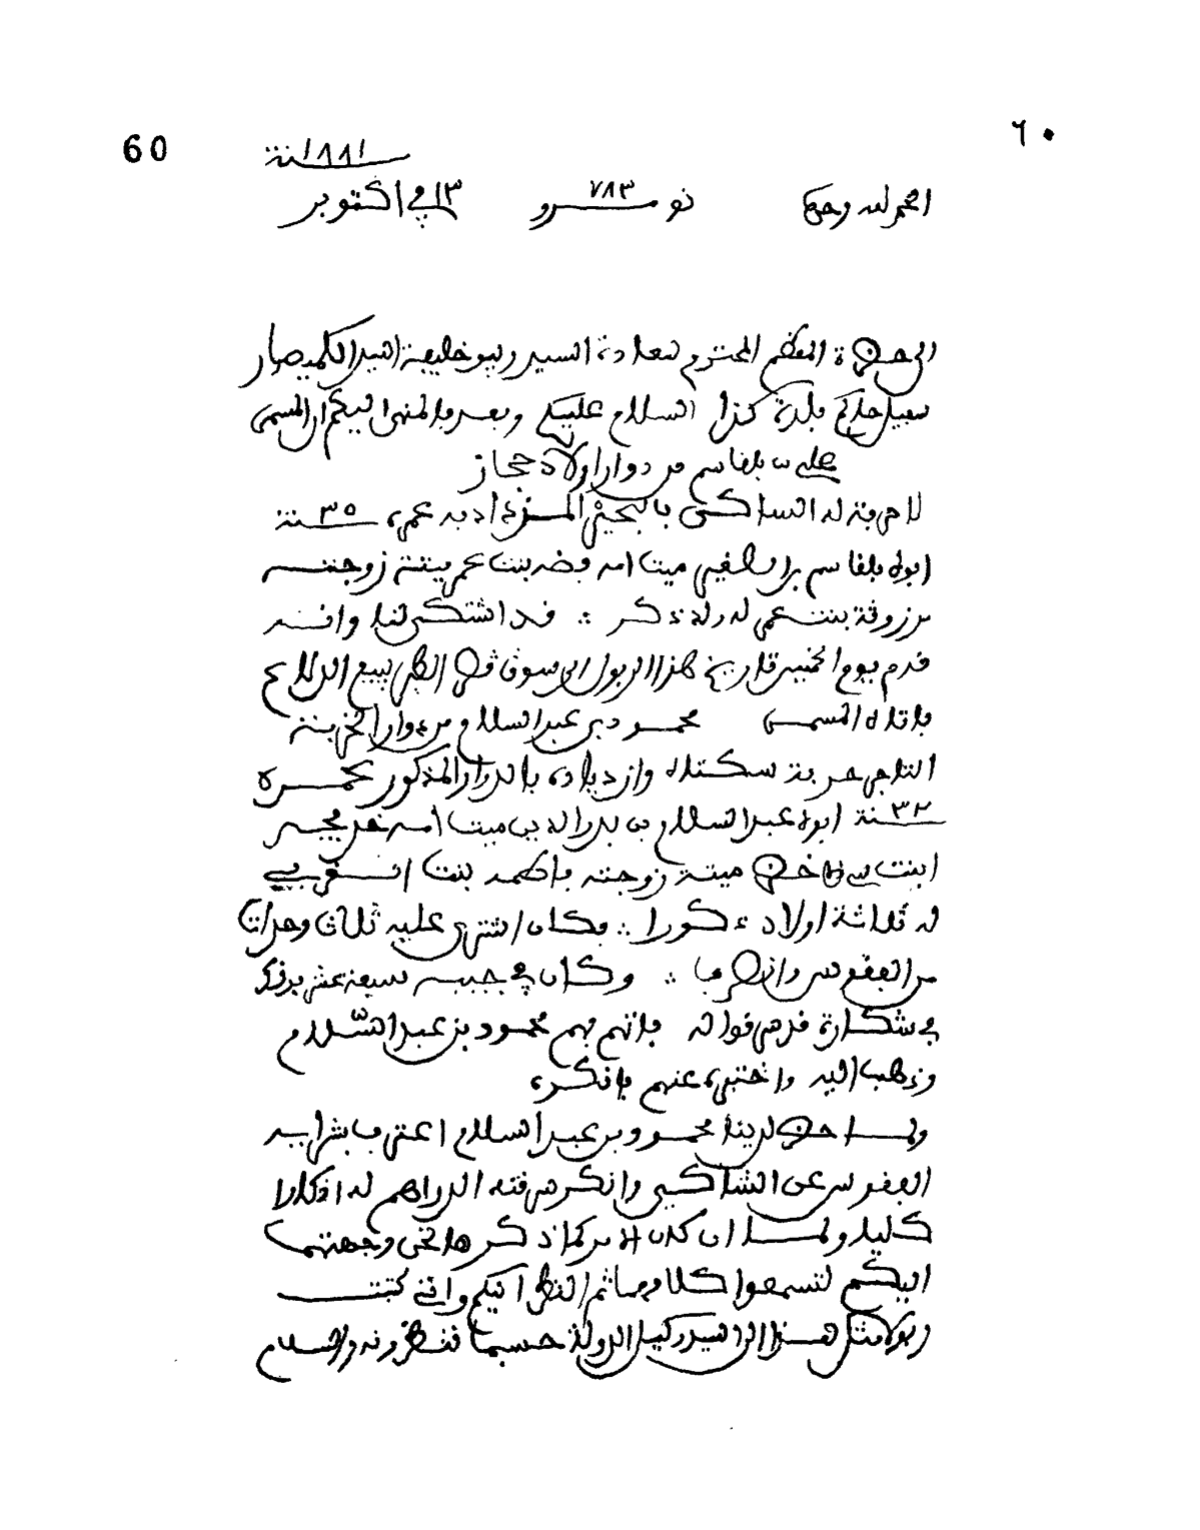 60
٦٠
١٨٨١ سنة
الحمد لله وحده نومرو ٧٨٣ ١٣ في اكتوبر
الى حضرة المعظم المحترم سعادة السيد ريبو خليفة السيد الكميصار
سفيل حاكم بلدة كذا السلام عليكم وبعد فالمنهى اليكم ان المسمى
علي بن بلقاسم من دوار اولاد حجاز
لا حرفة له الساكن بالبحير المزداد به عمره ٣٥ سنة
ابوه بلقاسم بن الصغير ميت امه فضه بنت عمر ميتة زوجته
مرزوقة بنت عمر له ولد ذكر ∴ قد اشتكى لنا وانه
قدم يوم الخميس تاريخ هذا البول الى سوق قصر الطير لبيع الدلاع
فاتاه المسمى محمود بن عبد السلام من دوار الخربة
التاجر حرفة سكناه وازدياده بالدوار المذكور عمره
٣٢ سنة ابوه عبد السلام بن بدر الدين ميت امه
ابنت سي الاخضر ميتة زوجته فاطمة بنت
له ثلاثة اولاد ذكورا ∴ فكان اشترى عليه ثلاث وحدات
من الفقوس وانصرف ∴ وكان في جيبه سبعة عشر فرنك
في شكارة قد سرقوا له فاتهم بهم محمود بن عبد السّلام
وذهب اليه واختبره عنهم فانكره
ولما حضر لدينا محمود بن عبد السلام اعترف بشراءيه
الفقوس عن الشاكي وانكر سرقته الدراهم له انكارا
كليا ولما ان كان الامر كما ذكر ها نحن وجهتهما
اليكم لتسمعوا كلامهما ثم النظر اليكم وانني كتبت
وبولا مثل هذا الى السيد وكيل الدولة حسبما تنظرونه والسلام